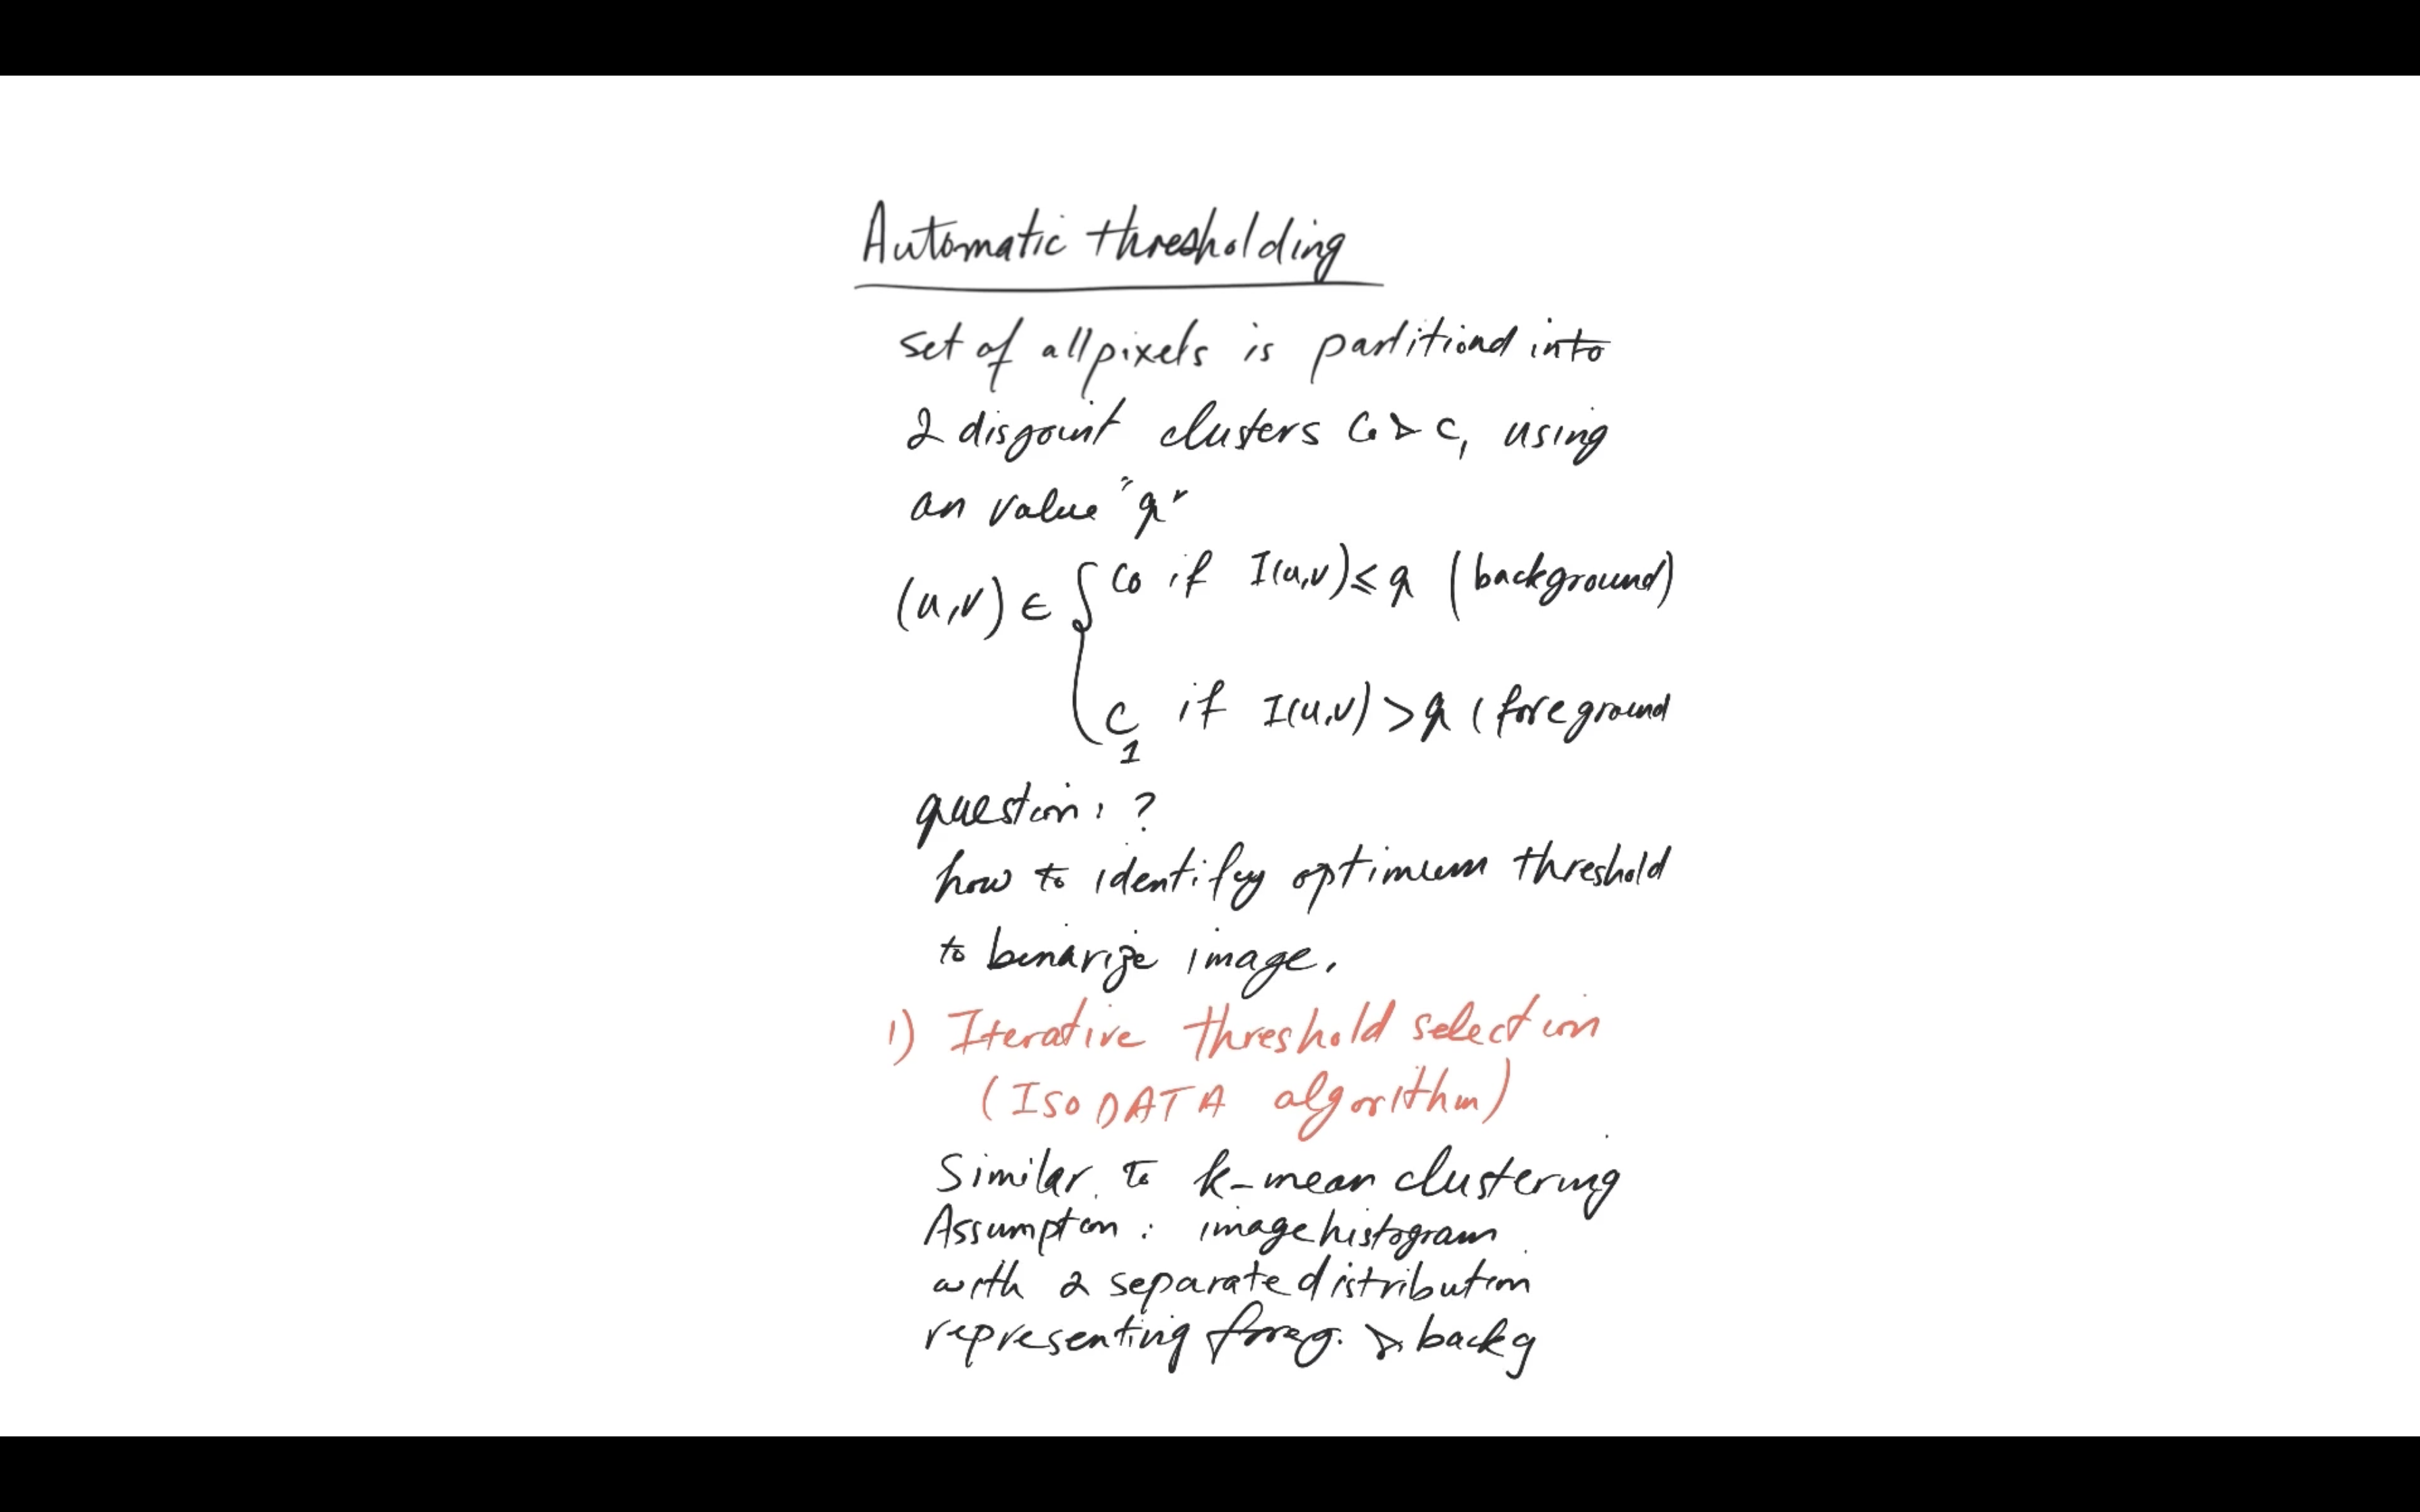 Automatic thresholding
set of all pixels is partitiond into
2 disgoint clusters C0 & C1 using
an value "q"
(u,v) ∈ { C0 if I(u,v) ≤ q (background)
C1 if I(u,v) > q (foreground
question: ?
how to identify optimum threshold
to binarize image.
1) Iterative threshold selection
(ISODATA algorithm)
Similar to k-mean clustering
Assumption: image histogram
with 2 separate distribution
representing foreg. & backg